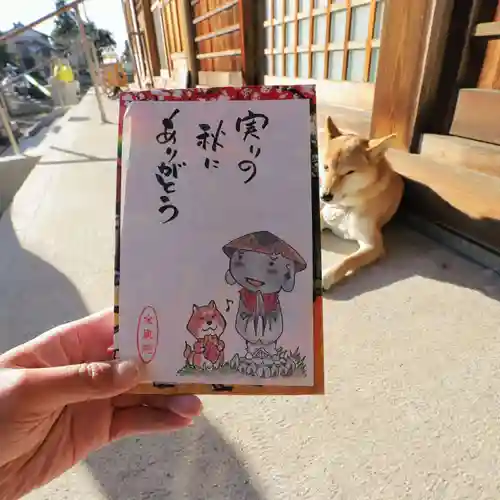 実りの
秋に
ありがとう